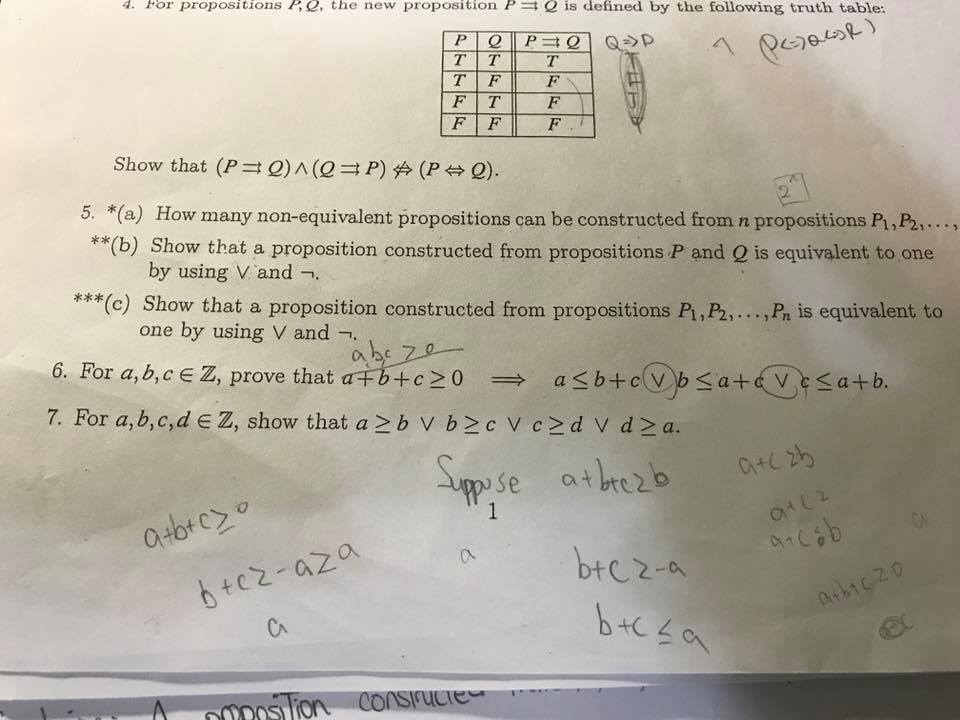 4. For propositions P, Q, the new proposition P ⇉ Q is defined by the following truth table:
P Q P ⇉ Q Q⇒P (P<=>Q<=>R)
T T T
T F F
F T F
F F F
Show that (P ⇉ Q) ∧ (Q ⇉ P) ⇎ (P ⇔ Q).
2^n
5. *(a) How many non-equivalent propositions can be constructed from n propositions P₁, P₂, ...,
**(b) Show that a proposition constructed from propositions P and Q is equivalent to one
by using ∨ and ¬.
***(c) Show that a proposition constructed from propositions P₁, P₂, ..., Pₙ is equivalent to
one by using ∨ and ¬.
a,b,c ≥ 0
6. For a, b, c ∈ ℤ, prove that a + b + c ≥ 0 ⟹ a ≤ b + c ∨ b ≤ a + c ∨ c ≤ a + b.
7. For a, b, c, d ∈ ℤ, show that a ≥ b ∨ b ≥ c ∨ c ≥ d ∨ d ≥ a.
Suppose a+b+c≥b a+c≥b
1
a+b+c≥0 a+c≥
a a+c≤b a
b+c≥-a≥a b+c≥-a
a+b+c≥0
a b+c≤a
A proposition constructed